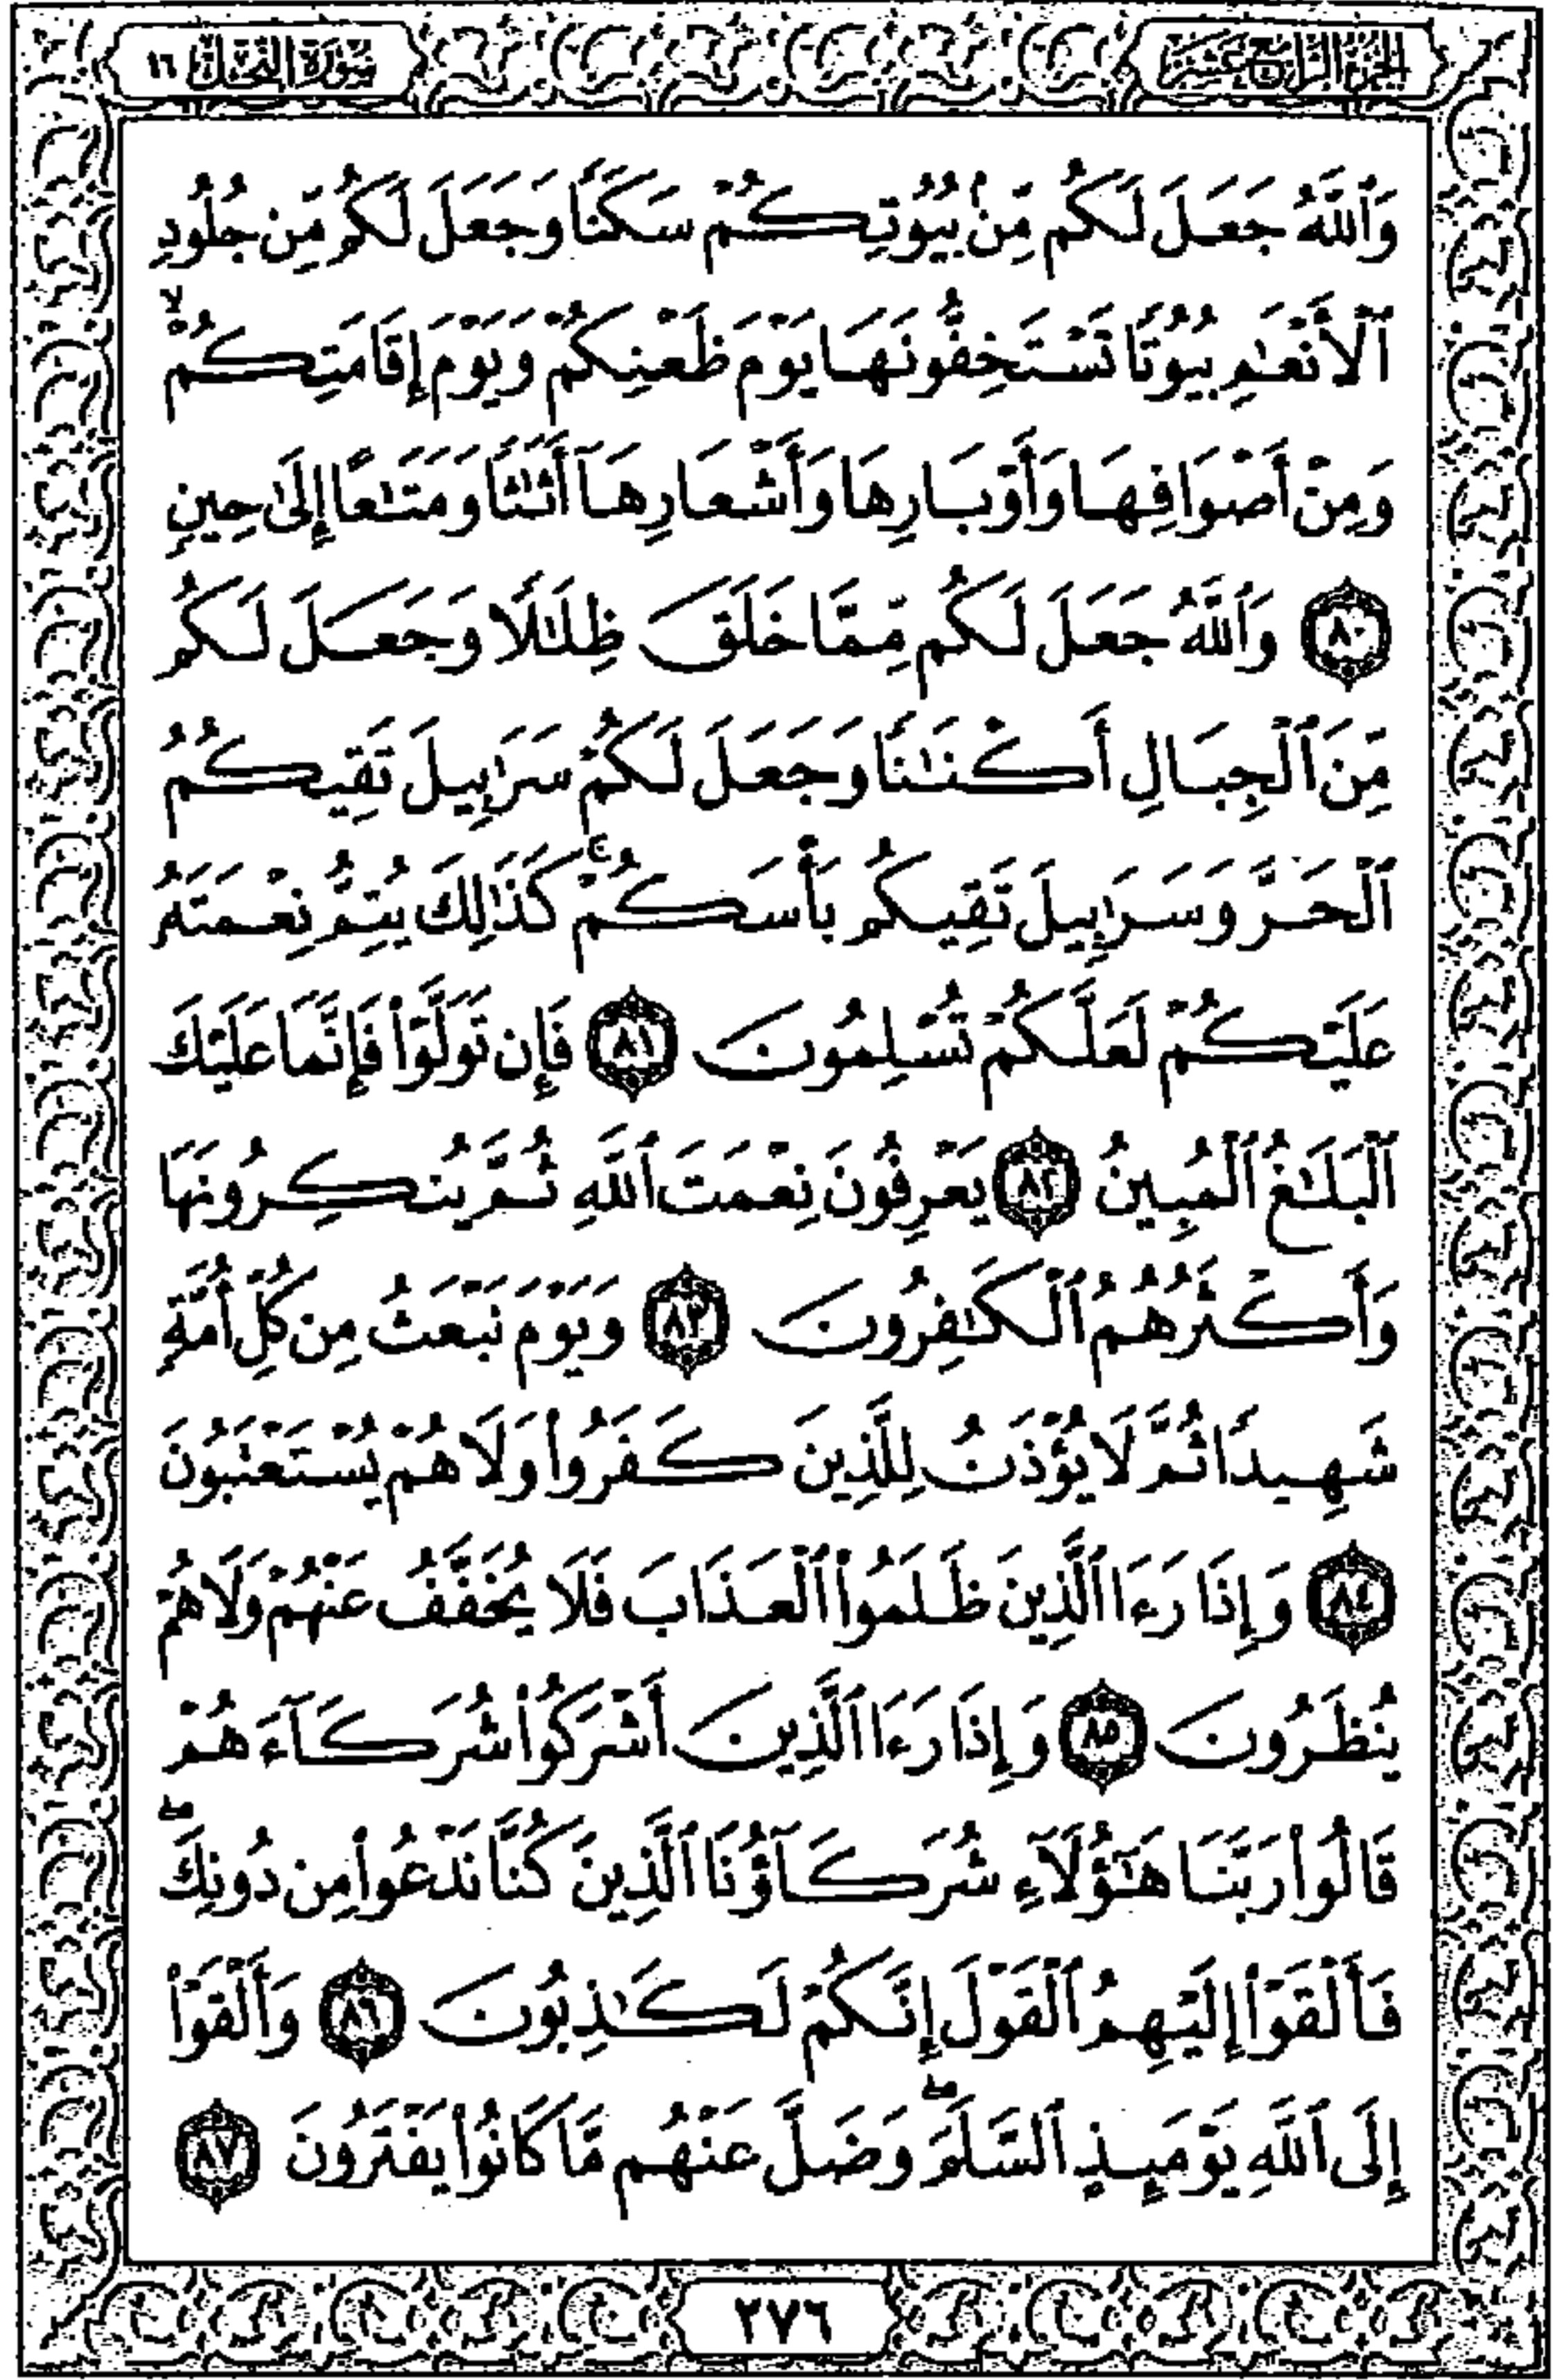 الجزء الرابع عشر
سورة النحل ١٦
وَٱللَّهُ جَعَلَ لَكُم مِّنۢ بُيُوتِكُمْ سَكَنًا وَجَعَلَ لَكُم مِّن جُلُودِ
ٱلْأَنْعَـٰمِ بُيُوتًا تَسْتَخِفُّونَهَا يَوْمَ ظَعْنِكُمْ وَيَوْمَ إِقَامَتِكُمْ ۙ
وَمِنْ أَصْوَافِهَا وَأَوْبَارِهَا وَأَشْعَارِهَآ أَثَـٰثًا وَمَتَـٰعًا إِلَىٰ حِينٍ
٨٠ وَٱللَّهُ جَعَلَ لَكُم مِّمَّا خَلَقَ ظِلَـٰلًا وَجَعَلَ لَكُم
مِّنَ ٱلْجِبَالِ أَكْنَـٰنًا وَجَعَلَ لَكُمْ سَرَٰبِيلَ تَقِيكُمُ
ٱلْحَرَّ وَسَرَٰبِيلَ تَقِيكُم بَأْسَكُمْ ۚ كَذَٰلِكَ يُتِمُّ نِعْمَتَهُۥ
عَلَيْكُمْ لَعَلَّكُمْ تُسْلِمُونَ ٨١ فَإِن تَوَلَّوْا۟ فَإِنَّمَا عَلَيْكَ
ٱلْبَلَـٰغُ ٱلْمُبِينُ ٨٢ يَعْرِفُونَ نِعْمَتَ ٱللَّهِ ثُمَّ يُنكِرُونَهَا
وَأَكْثَرُهُمُ ٱلْكَـٰفِرُونَ ٨٣ وَيَوْمَ نَبْعَثُ مِن كُلِّ أُمَّةٍ
شَهِيدًا ثُمَّ لَا يُؤْذَنُ لِلَّذِينَ كَفَرُوا۟ وَلَا هُمْ يُسْتَعْتَبُونَ
٨٤ وَإِذَا رَءَا ٱلَّذِينَ ظَلَمُوا۟ ٱلْعَذَابَ فَلَا يُخَفَّفُ عَنْهُمْ وَلَا هُمْ
يُنظَرُونَ ٨٥ وَإِذَا رَءَا ٱلَّذِينَ أَشْرَكُوا۟ شُرَكَآءَهُمْ
قَالُوا۟ رَبَّنَا هَـٰٓؤُلَآءِ شُرَكَآؤُنَا ٱلَّذِينَ كُنَّا نَدْعُوا۟ مِن دُونِكَ ۖ
فَأَلْقَوْا۟ إِلَيْهِمُ ٱلْقَوْلَ إِنَّكُمْ لَكَـٰذِبُونَ ٨٦ وَأَلْقَوْا۟
إِلَى ٱللَّهِ يَوْمَئِذٍ ٱلسَّلَمَ ۖ وَضَلَّ عَنْهُم مَّا كَانُوا۟ يَفْتَرُونَ ٨٧
٢٧٦